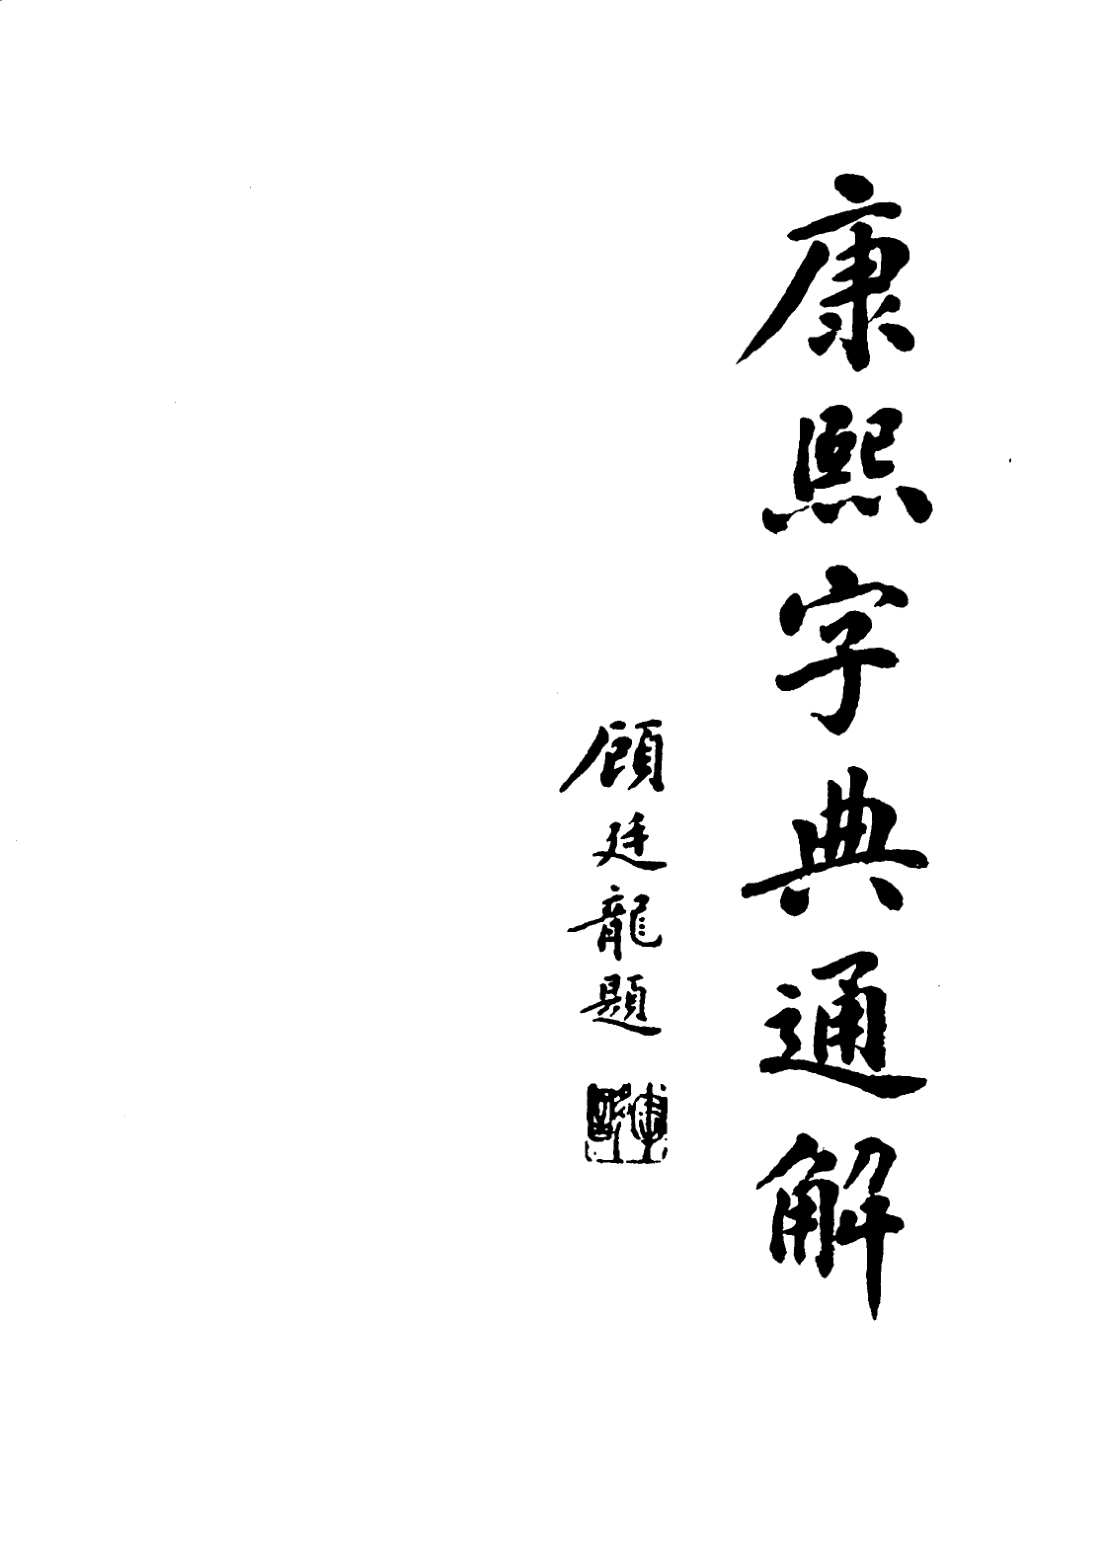 康熙字典通解
顧廷龍題